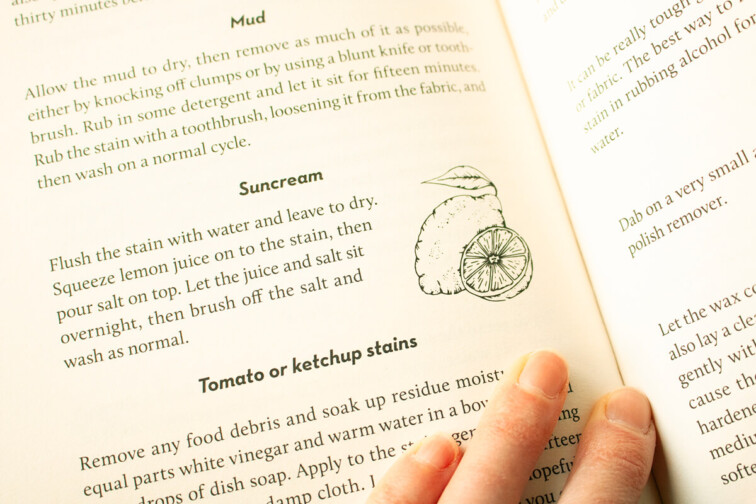 thirty minutes
Mud
Allow the mud to dry, then remove as much of it as possible,
either by knocking off clumps or by using a blunt knife or tooth-
brush. Rub in some detergent and let it sit for fifteen minutes.
Rub the stain with a toothbrush, loosening it from the fabric, and
then wash on a normal cycle.
Suncream
Flush the stain with water and leave to dry.
Squeeze lemon juice on to the stain, then
pour salt on top. Let the juice and salt sit
overnight, then brush off the salt and
wash as normal.
Tomato or ketchup stains
Remove any food debris and soak up residue
equal parts white vinegar and warm water in a
drops of dish soap. Apply to the
damp cloth.
you
It can be really tough
or fabric. The best way to
stain in rubbing alcohol for
water.
Dab on a very small
polish remover.
Let the wax
also lay a
gently
cause